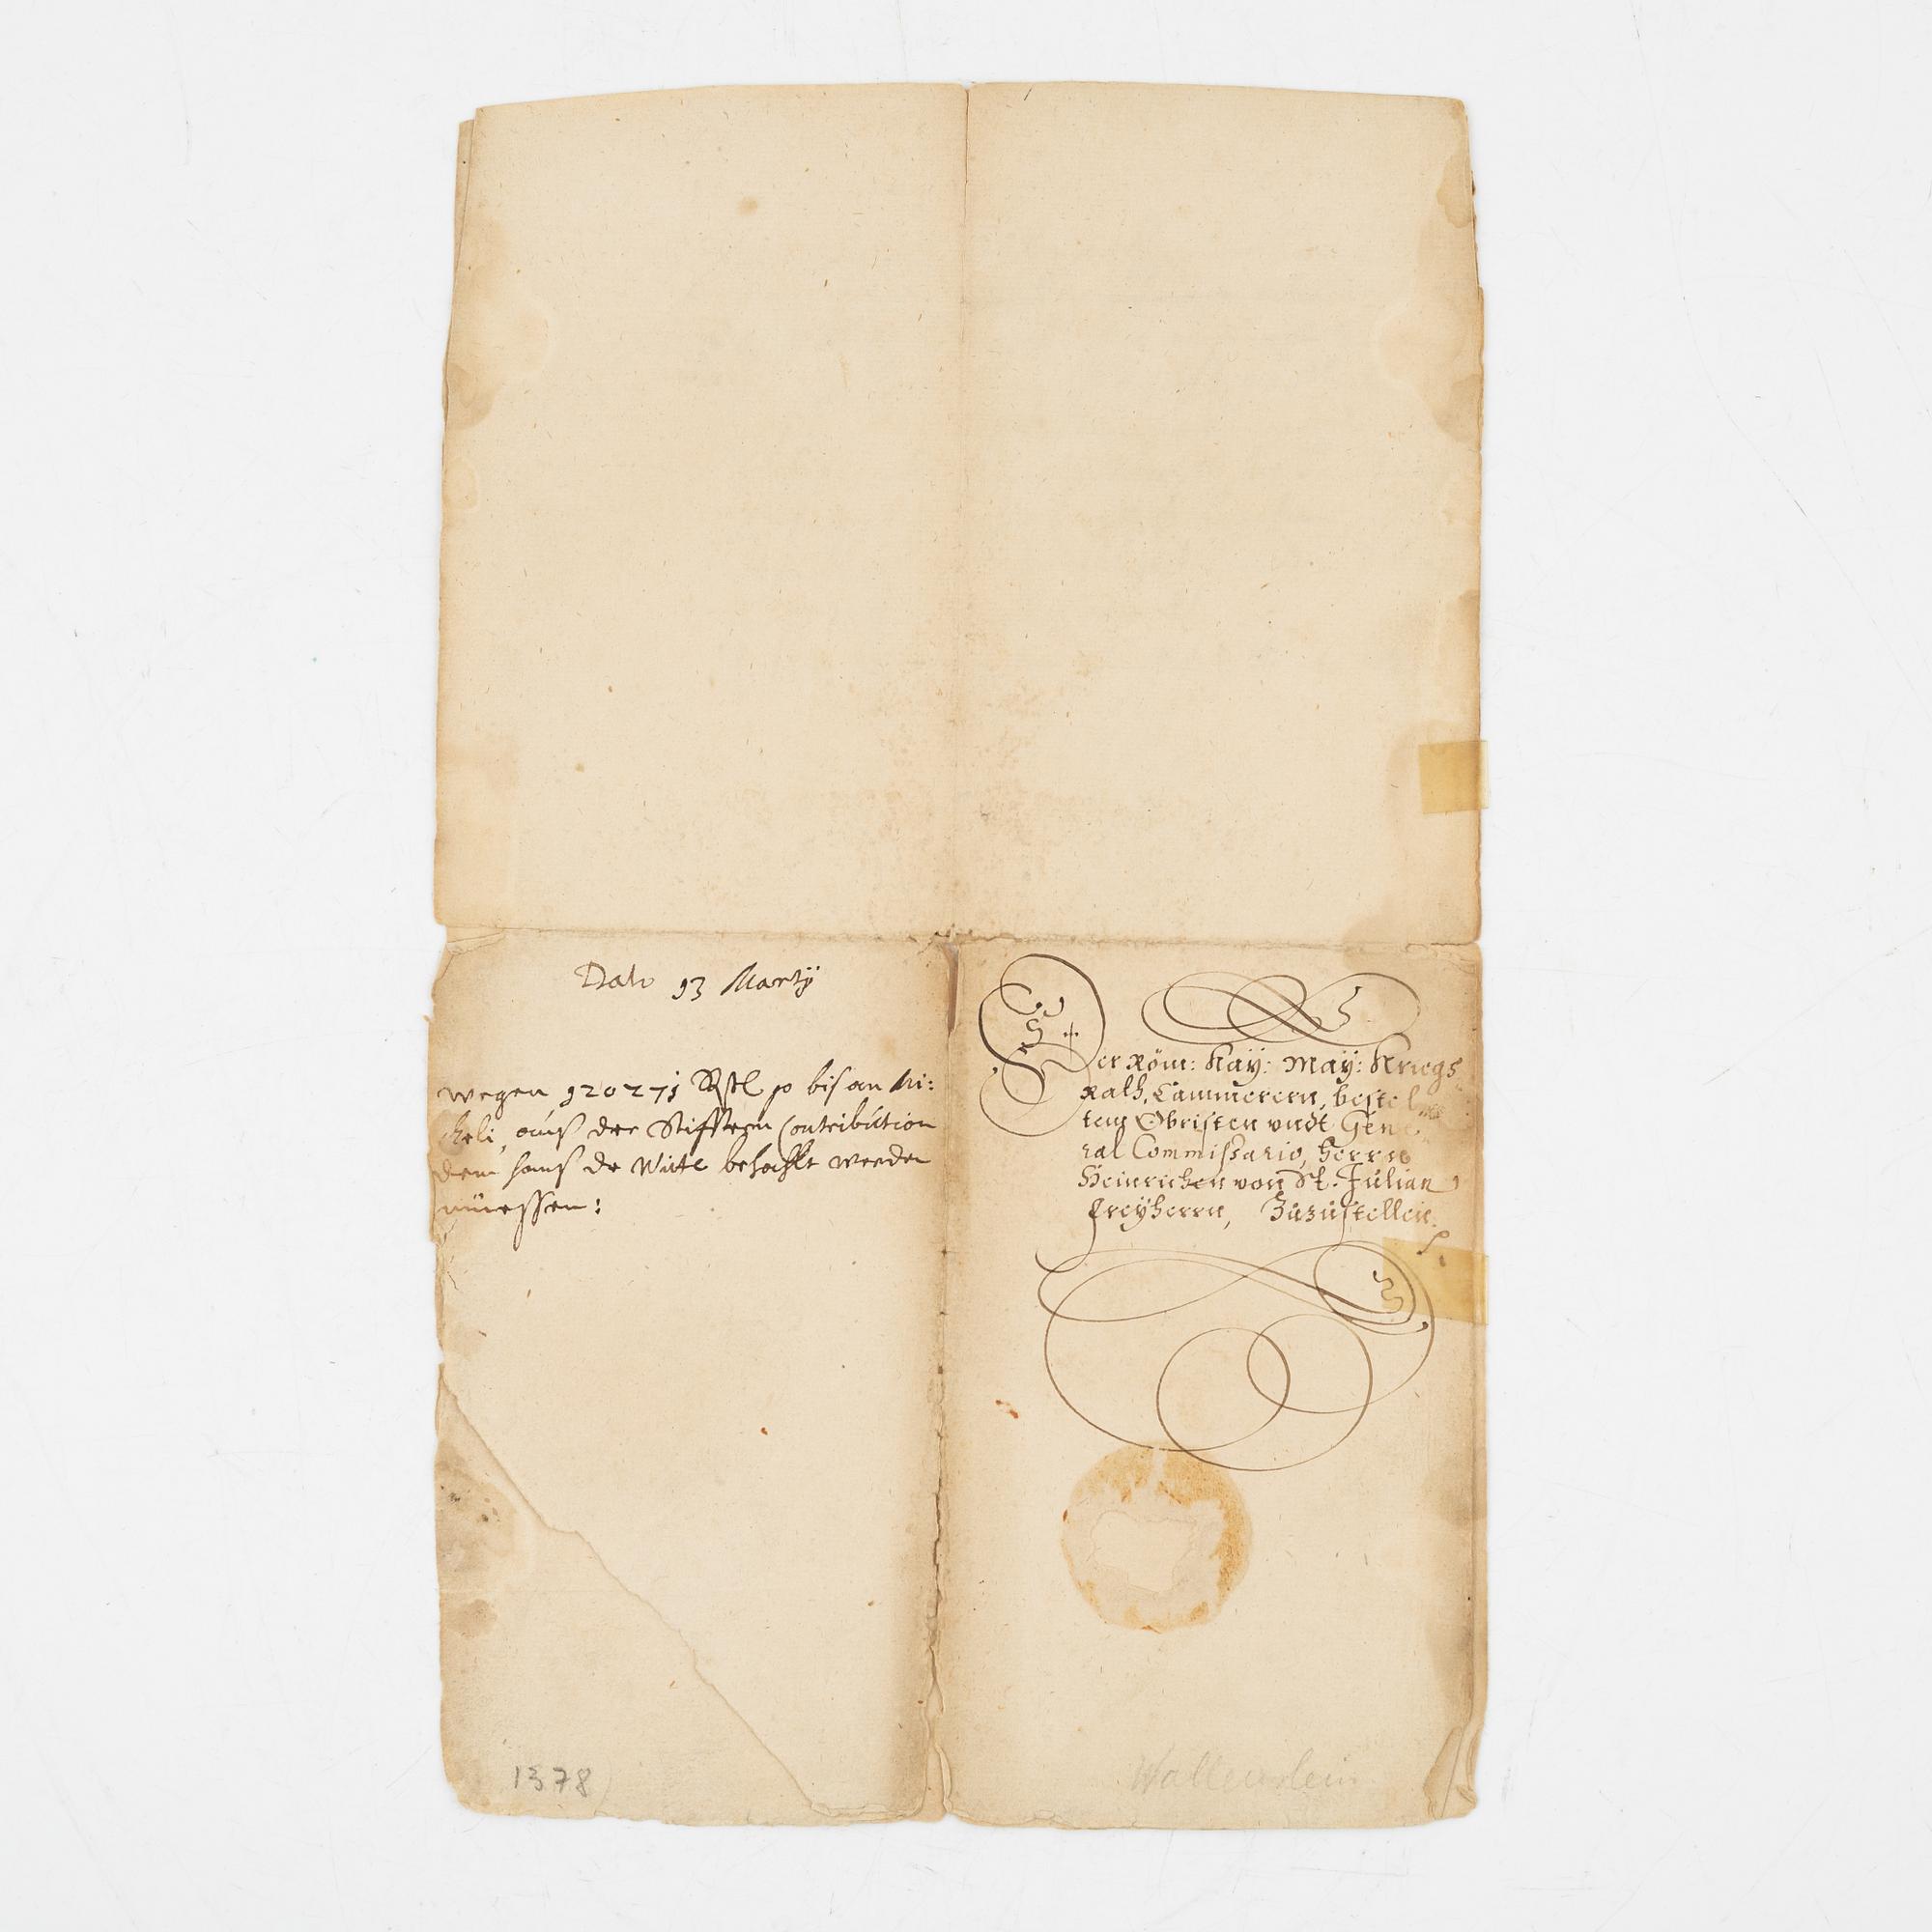 Dato 13 Martÿ
wegen 120271 Rthl so bis an Mi:
cheli, auß der Stifftern Contribution
dem Hanß de Witte bezahlt werden
müessen:
1378
Der Röm: Kaÿ: Maÿ: Kriegs
Rath, Cammerern, bestel
ten Obristen vndt Gene
ral Commissario, Herrn
Heinrichen von St. Julian
Freÿherrn, Zuzustellen.
Wallenstein